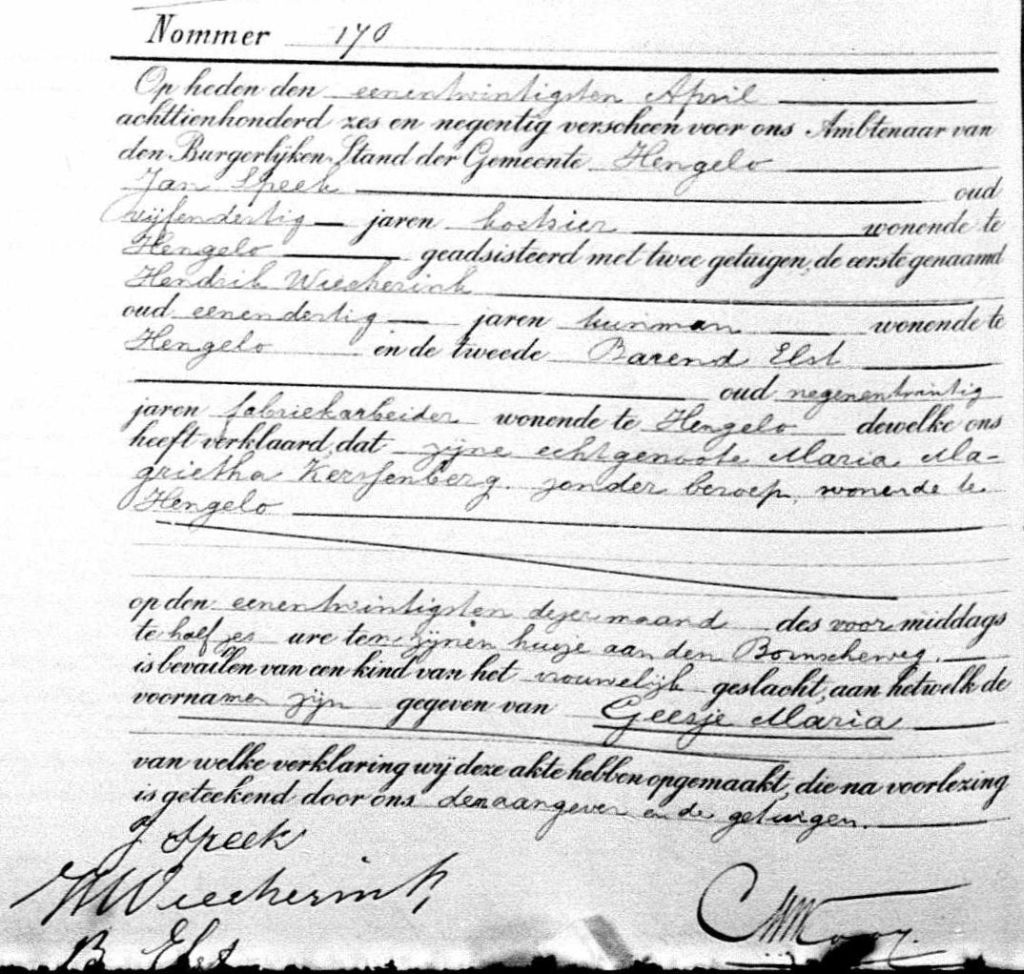 Nommer 170
Op heden den eenentwintigsten April
achttienhonderd zes en negentig verscheen voor ons Ambtenaar van
den Burgerlijken Stand der Gemeente Hengelo
Jan Speek oud
vijfendertig jaren koetsier wonende te
Hengelo geadsisteerd met twee getuigen, de eerste genaamd
Hendrik Wiecherink
oud eenendertig jaren tuinman wonende te
Hengelo en de tweede Barend Elst
oud negenentwintig
jaren fabriekarbeider wonende te Hengelo dewelke ons
heeft verklaard, dat zijne echtgenoote Maria Ma-
grietha Kerssenberg, zonder beroep, wonende te
Hengelo
op den eenentwintigsten dezer maand des voor middags
te half zes ure ten zijnen huize aan den Bornscheweg.
is bevallen van een kind van het vrouwelijk geslacht, aan hetwelk de
voornamen zijn gegeven van Geesje Maria
van welke verklaring wij deze akte hebben opgemaakt, die na voorlezing
is geteekend door ons den aangever en de getuigen.
J Speek
H Wiecherink
B Elst